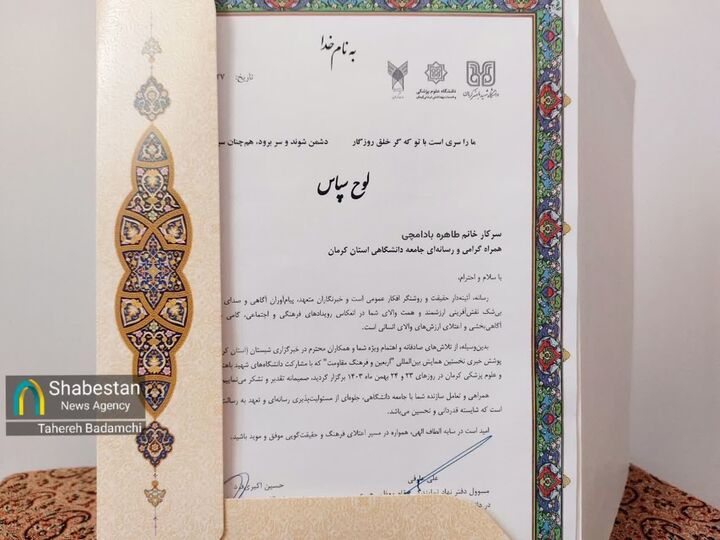 به نام خدا
دانشگاه شهید باهنر کرمان
دانشگاه علوم پزشکی
تاریخ: ۲۷
ما را سری است با تو که گر خلق روزگار دشمن شوند و سر برود، هم‌چنان سر
لوح سپاس
سرکار خانم طاهره بادامچی
همراه گرامی و رسانه‌ای جامعه دانشگاهی استان کرمان
با سلام و احترام،
رسانه، آئینه‌دار حقیقت و روشنگر افکار عمومی است و خبرنگاران متعهد، پیام‌آوران آگاهی و صدای
بی‌شک نقش‌آفرینی ارزشمند و همت والای شما در انعکاس رویدادهای فرهنگی و اجتماعی، گامی
آگاهی‌بخشی و اعتلای ارزش‌های والای انسانی است.
بدین‌وسیله، از تلاش‌های صادقانه و اهتمام ویژه شما و همکاران محترم در خبرگزاری شبستان (استان
پوشش خبری نخستین همایش بین‌المللی "اربعین و فرهنگ مقاومت" که با مشارکت دانشگاه‌های شهید
و علوم پزشکی کرمان در روزهای ۲۳ و ۲۴ بهمن ماه ۱۴۰۳ برگزار گردید، صمیمانه تقدیر و تشکر می‌نماییم
همراهی و تعامل سازنده شما با جامعه دانشگاهی، جلوه‌ای از مسئولیت‌پذیری رسانه‌ای و تعهد به رسالت
است که شایسته قدردانی و تحسین می‌باشد.
امید است در سایه الطاف الهی، همواره در مسیر اعتلای فرهنگ و حقیقت‌گویی موفق و موید باشید.
علی
حسین اکبری
مسوول دفتر نهاد
Shabestan
News Agency
Tahereh Badamchi